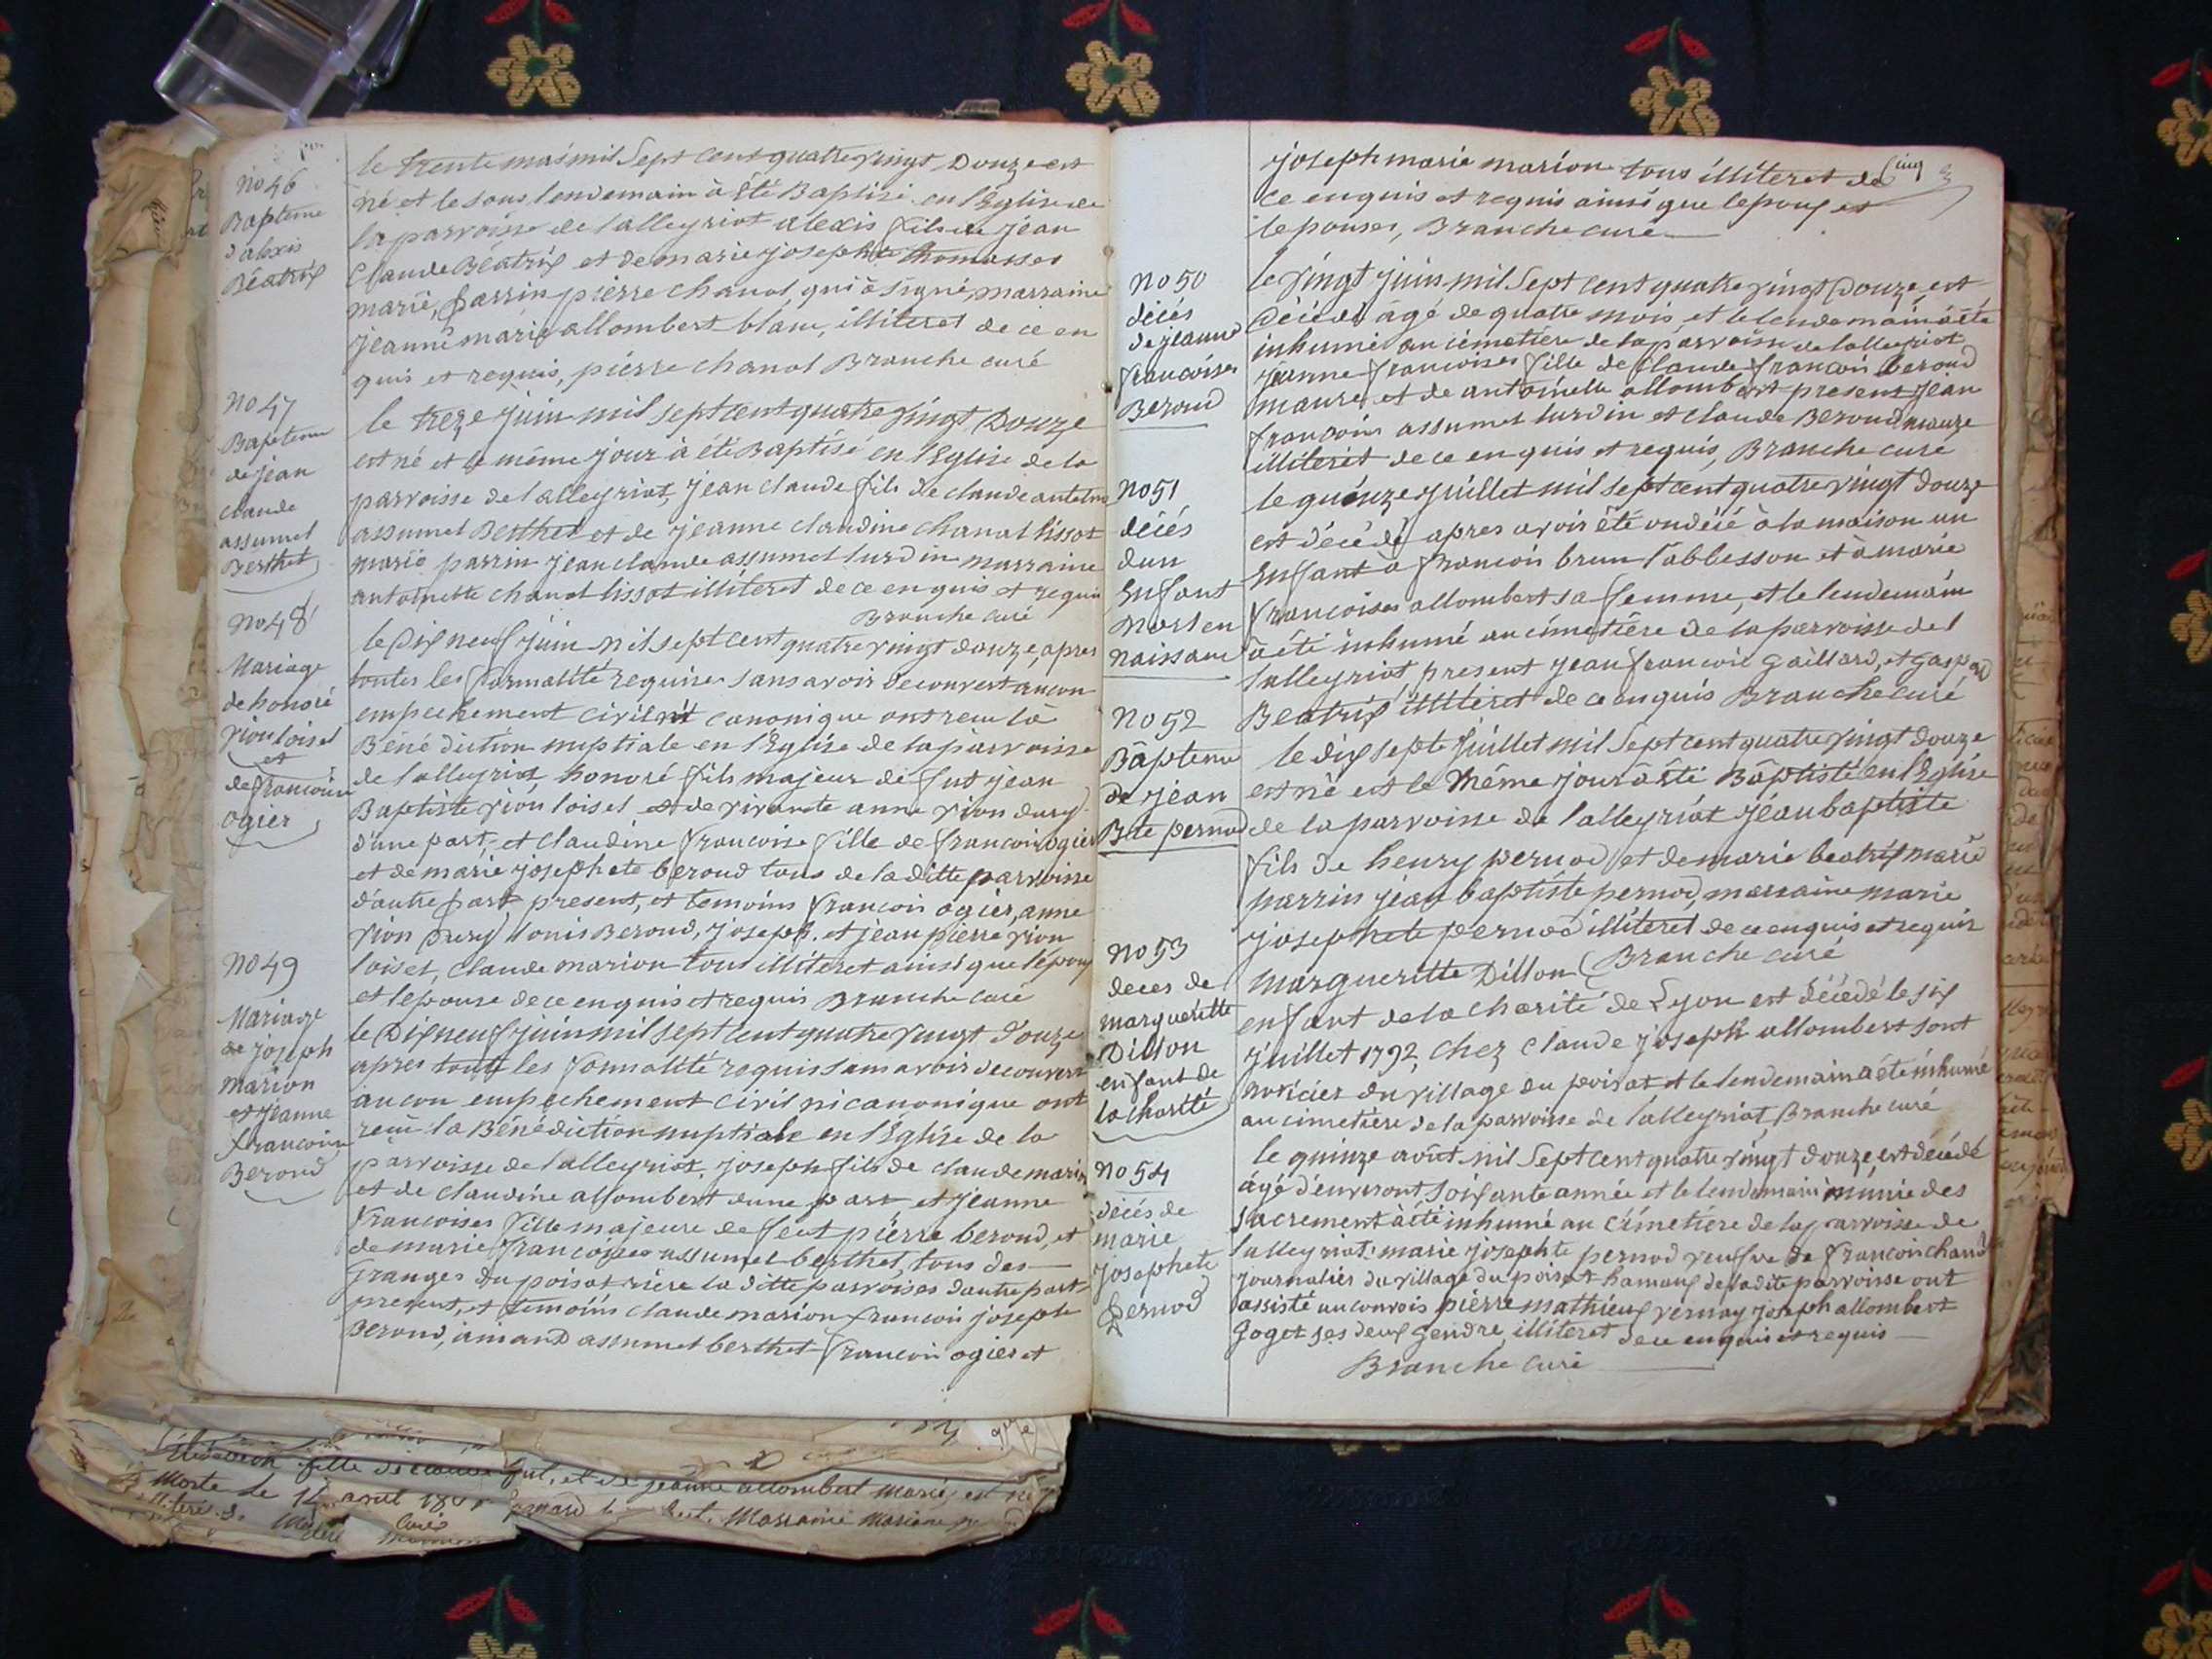 No 46
Bapteme
d'alexis
Béatrix
le trente mai mil Sept cent quatre vingt Douze est
né et le sous lendemain à été Baptisé en l'Eglise de
la parroisse de lalleyriat alexis fils de jean
Claude Béatrix et de marie josephte thomasset
marié, parrin pierre chanal, qui à signé, marraine
jeanne marie allombert blanc, illiteret de ce en
quis et requis, pierre chanal Branche curé
No 47
Bapteme
de jean
claude
assumel
Berthet
le treze juin mil sept cent quatre vingt Douze
est né et le même jour à été Baptisé en l'Eglise de la
parroisse de lalleyriat, jean claude fils de claude antelme
assumel Berthet et de jeanne claudine chanal lissot
marié parrin jean claude assumel lurdin marraine
antoinette chanal lissot illiteret de ce en quis et requis
Branche curé
No 48
Mariage
de honoré
vion loisel
et
de francoise
ogier
le Dix neuf juin mil sept cent quatre vingt douze, apres
toutes les formalité requises sans avoir decouvert aucon
empechement civil ni canonique ont reçu la
Béné diction nuptiale en l'Eglise de la parroisse
de lalleyriat, honoré fils majeur de fut jean
Baptiste vion loisel et de vivante anne vion dury
d'une part, et claudine francoise fille de francois ogier
et de marie josephete beroud tous de la ditte parroisse
d'autre part, present, et temoins francois ogier, anne
vion dury louis Beroud, joseph. et jean pierre vion
loisel, claude marion tous illiteret ainsi que lepoux
et lepouse de ce en quis et requis Branche curé
No 49
Mariage
de joseph
marion
et jeanne
francoise
Beroud
le Dix neuf juin mil sept cent quatre vingt Douze
apres toute les formalité requis sans avoir decouvert
aucon empechement civil ni canonique ont
reçu la Bénédiction nuptiale en l'Eglise de la
parroisse de lalleyriat, joseph fils de claude marion
et de claudine allombert dune part, et jeanne
francoises fille majeure de feut pierre beroud, et
de marie francoises assumel berthet, tous des
Granges du poisat rière la ditte parroises dautre part
present, et temoins claude marion francois joseph
Beroud, amand assumel berthet francois ogier et
joseph marie marion tous illiteret de
ce enquis et requis ainsi que lepoux et
lepouse, Branche curé
No 50
décés
de jeanne
francoises
Beroud
le vingt juin mil Sept cent quatre vingt Douze est
décédé âgé de quatre mois et le lendemain à été
inhumé au cimetière de la parroisse de lalleyriat
jeanne francoises fille de claude francois beroud
mauze et de antoinette allombert present jean
francois assumel lurdin et claude Beroud mauze
illiteret de ce en quis et requis, Branche curé
No 51
décés
dun
Enfant
Mort en
naissant
le quinze juillet mil sept cent quatre vingt douze
est décédé apres avoir été ondéié à la maison un
Enfant à francois brun labbesson et à marie
francoises allombert sa femme, et le lendemain
à été inhumé au cimetière de la parroisse de l
lalleyriat, present jean francois gaillard, et gaspar
Beatrix illiteret de ce enquis Branche curé
No 52
Bâpteme
de jean
Bte pernod
le dix septe juillet mil Sept cent quatre vingt douze
est né est le même jour à été Bâptisté en l'Eglise
de la parroisse de lalleyriat jean baptiste
fils de henry pernod et de marie beatrix marié
parrin jean baptiste pernod, marraine marie
josephete pernod illiteret de ce enquis et requis
Branche curé
No 53
deces de
marguerite
Dillon
enfant de
la charité
marguerite Dillon
enfant de la charité de Lyon est décédé le six
juillet 1792, chez claude joseph allombert sont
noricier du village du poisat et le lendemain a été inhumé
au cimetière de la parroisse de lalleyriat, Branche curé
No 54
décés de
marie
josephete
Pernod
le quinze août mil Sept cent quatre vingt douze, est décédé
âgé d'envront soixante année et le lendemain munie des
sacrement à été inhumé au cimetière de la parroisse de
lalleyriat marie josephte pernod veufve de francois chanal
journaliér du village du poisat hamaux de la dite parroisse ont
assisté au convois pierre mathieux vernay joseph allombert
goget ses deux Gendre illiteret de ce en quis et requis
Branche curé
fille de claude
et de jeanne allombert Mariés est né
Morte le 14 avril
Marraine Mariane